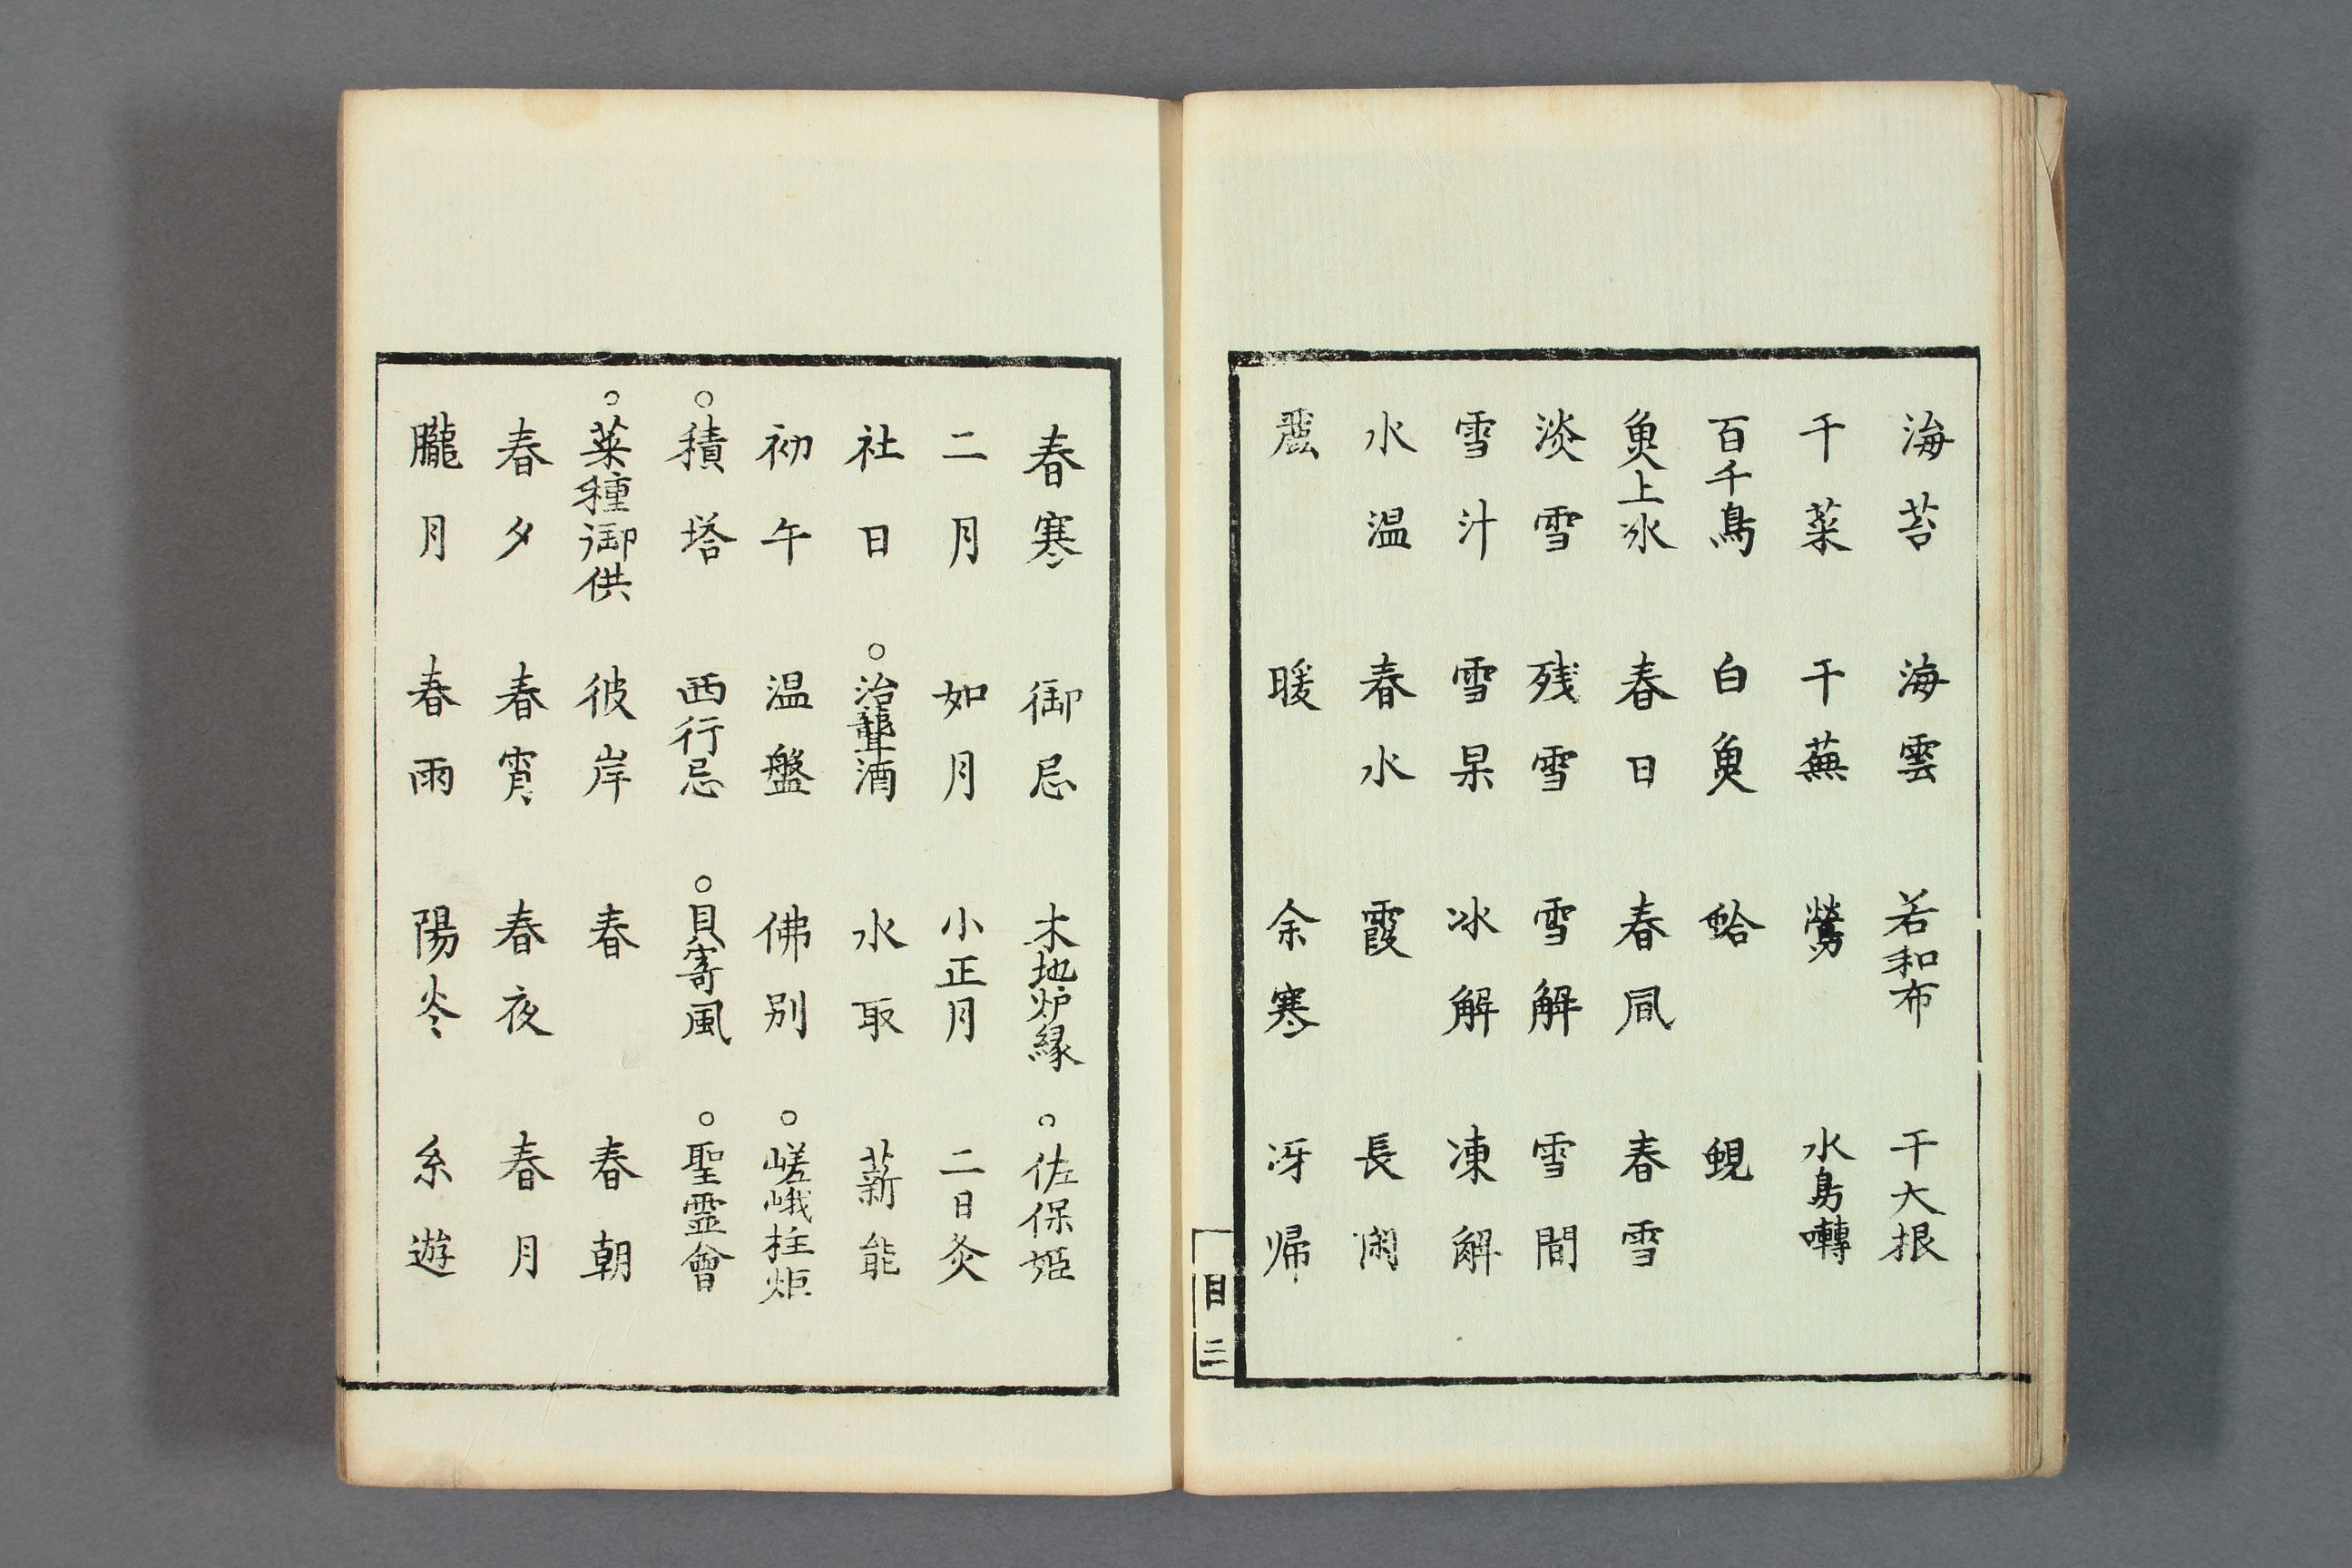 海苔　海雲　若和布　干大根
干菜　干蕪　鶯　水鳥囀
百千鳥　白魚　蛤　蜆
魚上冰　春日　春風　春雪
淡雪　残雪　雪解　雪間
雪汁　雪杲　冰解　凍解
水温　春水　霞　長閑
麗　暖　余寒　冴帰
目三
春寒　御忌　木地炉縁　○佐保姫
二月　如月　小正月　二日灸
社日　○治聾酒　水取　薪能
初午　温盤　佛別　○嵯峨柱炬
○積塔　西行忌　○貝寄風　○聖霊會
○菜種御供　彼岸　春　春朝
春夕　春宵　春夜　春月
朧月　春雨　陽炎　糸遊